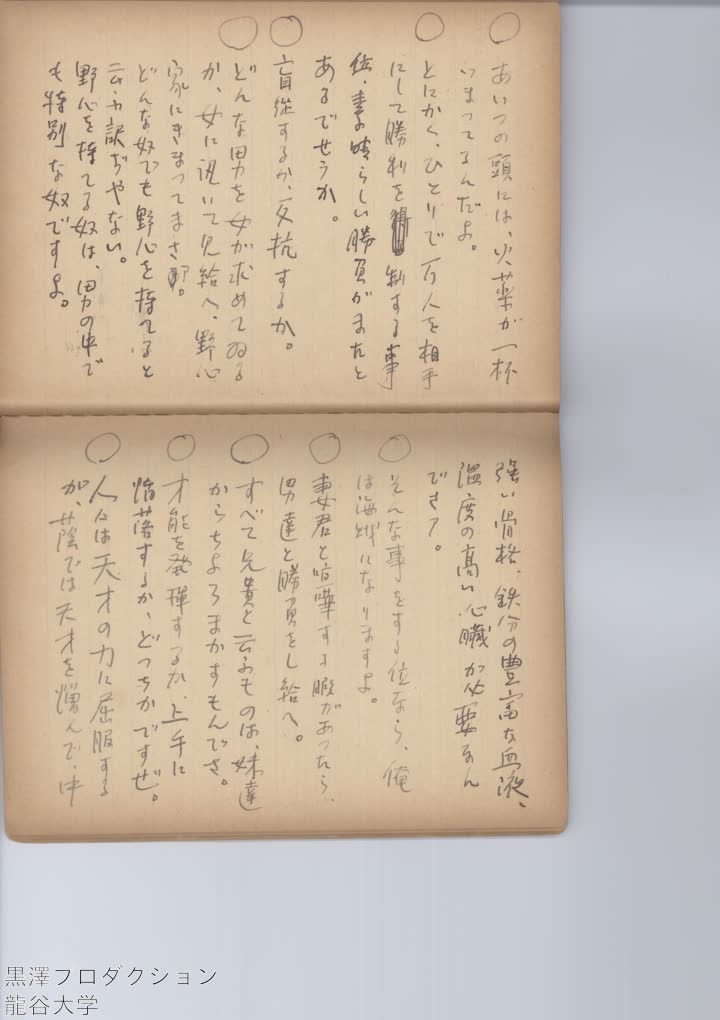 ○ あいつの頭には、火薬が一杯
つまつてるんだよ。
○ とにかく、ひとりで万人を相手
にして勝利を制する事
位、素晴らしい勝負がまたと
あるでせうか。
○ 盲従するか、反抗するか。
○ どんな男を女が求めてゐる
か、女に訊いて見給へ、野心
家にきまつてまさ。
どんな奴でも野心を持てると
云ふ訳ぢやない。
野心を持てる奴は、男の中で
も特別な奴ですよ。
強い骨格、鉄分の豊富な血液、
温度の高い心臓が必要なん
でさア。
○ そんな事をする位なら、俺
は海賊になりますよ。
○ 妻君と喧嘩する暇があつたら、
男達と勝負をし給へ。
○ すべて兄貴と云ふものは、妹達
からちよろまかすもんでさ。
○ 才能を発揮するか、上手に
堕落するか、どつちかですぜ。
○ 人々は天才の力に屈服する
が、蔭では天才を憎んで、中
黒澤プロダクション
龍谷大学